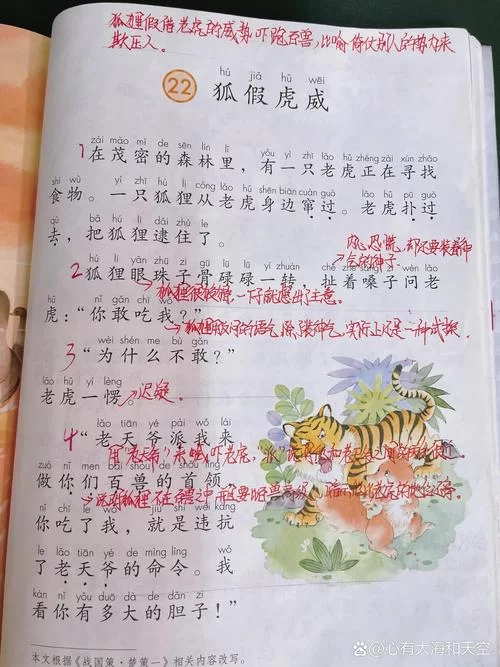 狐狸假借老虎的威势吓跑百兽,比喻倚仗别人的势力来
欺压人。
22
hú jiǎ hǔ wēi
狐假虎威
zài mào mì de sēn lín lǐ yǒu yì zhī lǎo hǔ zhèng zài xún zhǎo
1 在茂密的森林里,有一只老虎正在寻找
shí wù yì zhī hú li cóng lǎo hǔ shēn biān cuàn guò lǎo hǔ pū guò
食物。一只狐狸从老虎身边窜过。老虎扑过
qù bǎ hú li dǎi zhù le
去,把狐狸逮住了。
hú li yǎn zhū zi gū lù yì zhuàn chě zhe sǎng zi wèn lǎo
2 狐狸眼珠子骨碌碌一转,扯着嗓子问老
狐狸很狡猾,一下就想出注意。
hǔ nǐ gǎn chī wǒ
虎:“你敢吃我?”
wèi shén me bù gǎn
3 “为什么不敢?”
lǎo hǔ yí lèng
老虎一愣。
迟疑
lǎo tiān yé pài wǒ lái
4 “老天爷派我来
zuò nǐ men bǎi shòu de shǒu lǐng
做你们百兽的首领,
nǐ chī le wǒ jiù shì wéi kàng
你吃了我,就是违抗
le lǎo tiān yé de mìng lìng wǒ
了老天爷的命令。我
kàn nǐ yǒu duō dà de dǎn zi
看你有多大的胆子!”
本文根据《战国策·楚策一》相关内容改写。
@心有大海和天空